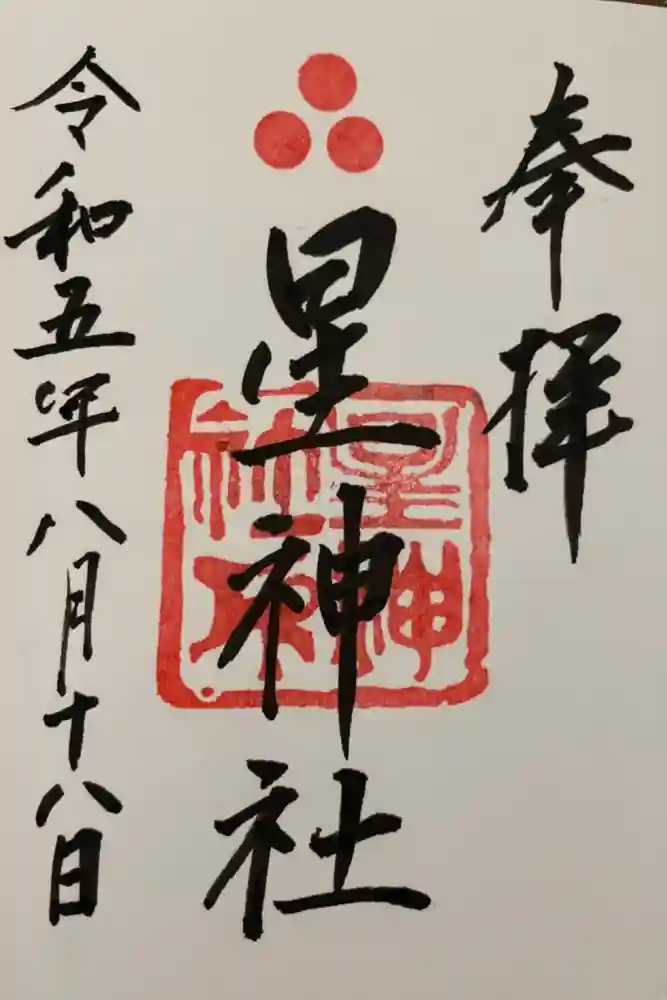 奉拝
星神社
令和五年八月十八日